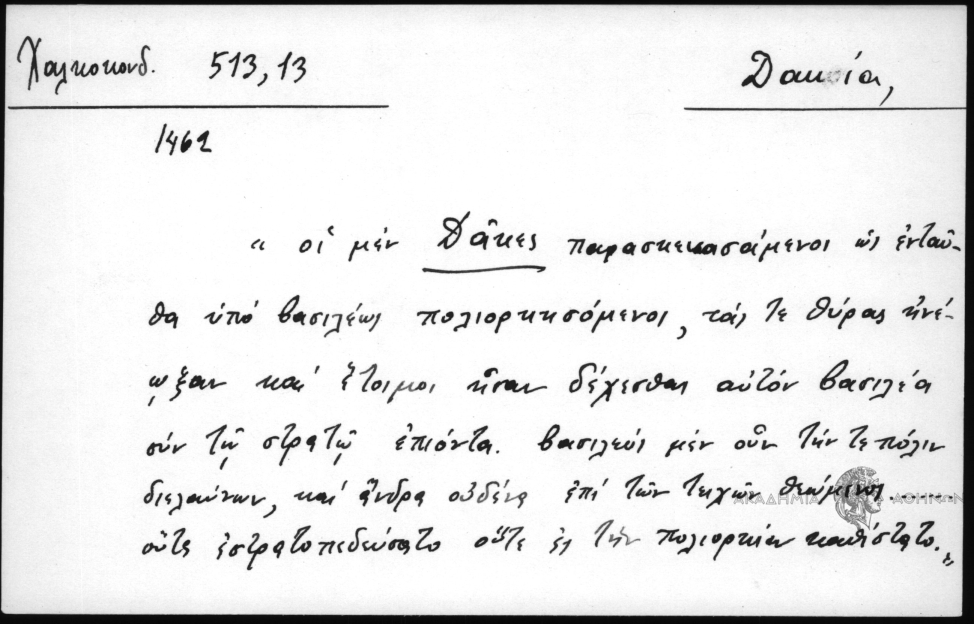 Χαλκοκονδ. 513,13
Δακία,
1462
« οἱ μέν Δᾶκες παρασκευασάμενοι ὡς ἐνταῦ-
θα ὑπό βασιλέως πολιορκησόμενοι, τάς τε θύρας ἠνέ-
ῳξαν καί ἕτοιμοι ἦσαν δέχεσθαι αὐτόν βασιλέα
σύν τῷ στρατῷ ἐπιόντα. βασιλεύς μέν οὖν τήν τε πόλιν
διελαύνων, καί ἄνδρα οὐδένα ἐπί τῶν τειχῶν θεώμενος........
οὔτε ἐστρατοπεδεύσατο οὔτε ἐς τήν πολιορκίαν καθίστατο.»
ΑΚΑΔΗΜΙΑ ΑΘΗΝΩΝ